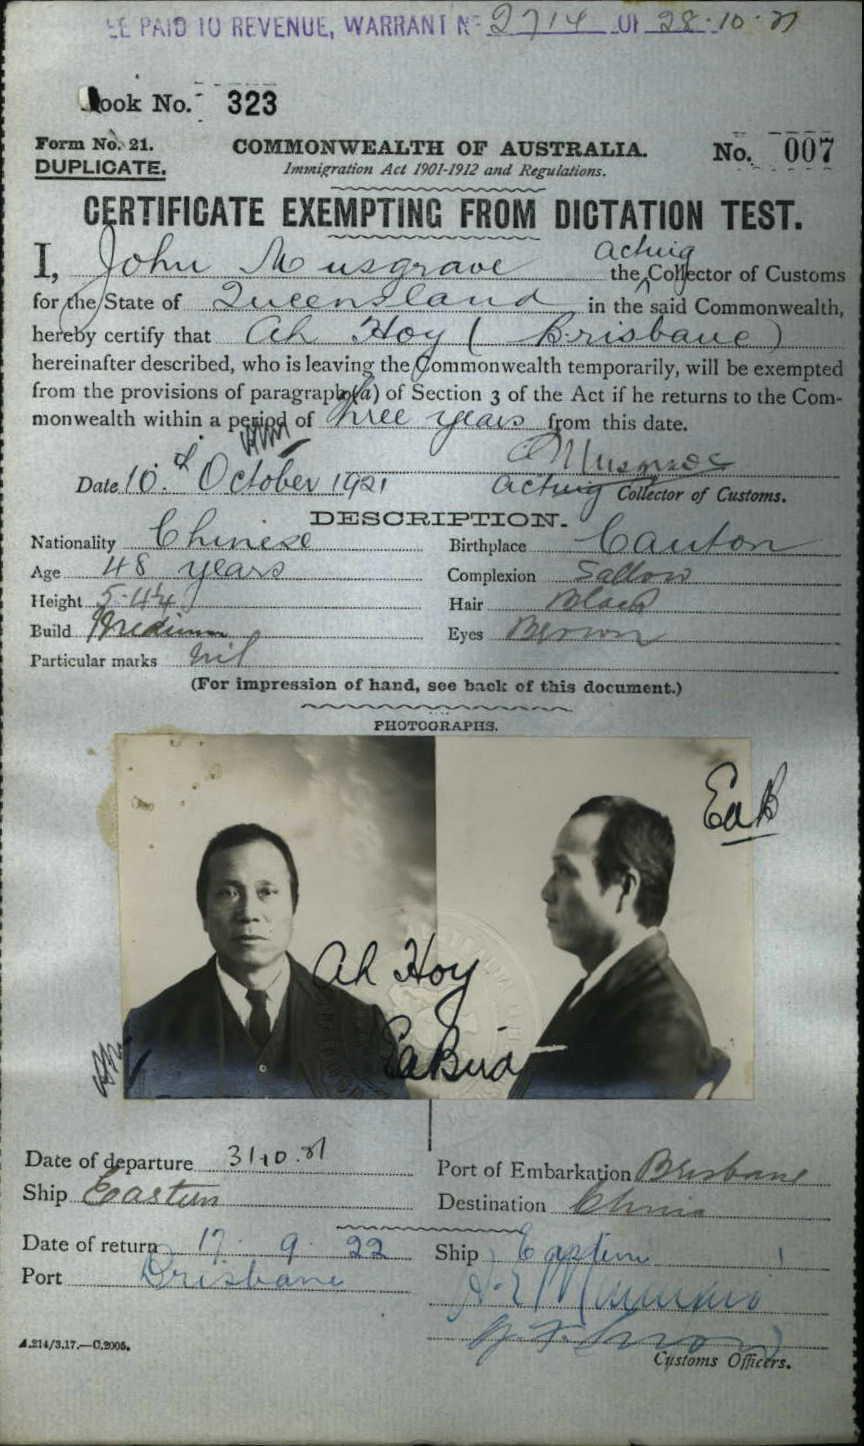 EE PAID TO REVENUE, WARRANT No 2714 OF 28.10.21
Book No. 323
Form No. 21.
DUPLICATE.
COMMONWEALTH OF AUSTRALIA.
Immigration Act 1901-1912 and Regulations.
No. 007
CERTIFICATE EXEMPTING FROM DICTATION TEST.
I, John Musgrave acting the Collector of Customs
for the State of Queensland in the said Commonwealth,
hereby certify that Ah Hoy (Brisbane)
hereinafter described, who is leaving the Commonwealth temporarily, will be exempted
from the provisions of paragraph (a) of Section 3 of the Act if he returns to the Com-
monwealth within a period of three years from this date.
Date 10th October 1921
J Musgrave
acting Collector of Customs.
DESCRIPTION.
Nationality Chinese
Birthplace Canton
Age 48 years
Complexion Sallow
Height 5-4¼
Hair Black
Build Medium
Eyes Brown
Particular marks nil
(For impression of hand, see back of this document.)
PHOTOGRAPHS.
EaB
Ah Hoy
EaBird
Date of departure 31.10.21
Port of Embarkation Brisbane
Ship Eastern
Destination China
Date of return 17. 9. 22
Ship Eastern
Port Brisbane
A.214/3.17.—C.2005.
Customs Officers.